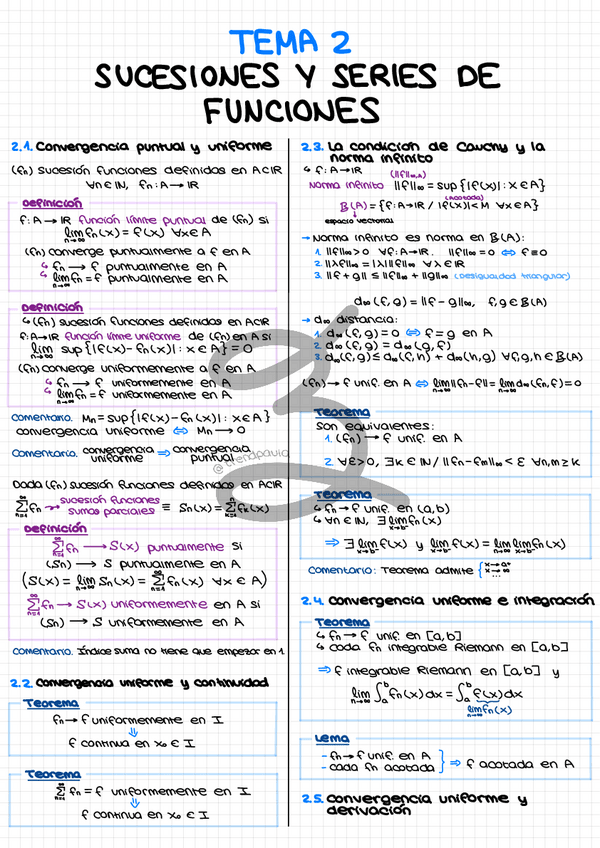 TEMA 2
SUCESIONES Y SERIES DE
FUNCIONES
2.1. Convergencia puntual y uniforme
(fn) sucesión funciones definidas en A⊂ℝ
∀n∈ℕ, fn: A→ℝ
Definición
f: A→ℝ función límite puntual de (fn) si
lim n→∞ fn(x) = f(x) ∀x∈A
(fn) converge puntualmente a f en A
↳ fn → f puntualmente en A
↳ lim n→∞ fn = f puntualmente en A
Definición
↳ (fn) sucesión funciones definidas en A⊂ℝ
f: A→ℝ función límite uniforme de (fn) en A si
lim n→∞ sup{|f(x)-fn(x)| : x∈A} = 0
(fn) converge uniformemente a f en A
↳ fn → f uniformemente en A
↳ lim n→∞ fn = f uniformemente en A
Comentario. Mn = sup{|f(x)-fn(x)| : x∈A}
convergencia uniforme ⇔ Mn → 0
Comentario. convergencia uniforme ⇒ convergencia puntual
@trendpavia
Dada (fn) sucesión funciones definidas en A⊂ℝ
∞ Σ n=1 fn → sucesión funciones sumas parciales ≡ Sn(x) = n Σ k=1 fk(x)
Definición
∞ Σ n=1 fn → S(x) puntualmente si
(Sn) → S puntualmente en A
(S(x) = lim n→∞ Sn(x) = ∞ Σ n=1 fn(x) ∀x∈A)
∞ Σ n=1 fn → S(x) uniformemente en A si
(Sn) → S uniformemente en A
Comentario. Índice suma no tiene que empezar en 1
2.2. Convergencia uniforme y continuidad
Teorema
fn → f uniformemente en I
⇓
f continua en x₀ ∈ I
Teorema
∞ Σ n=1 fn = f uniformemente en I
⇓
f continua en x₀ ∈ I
2.3. La condición de Cauchy y la
norma infinito
↳ f: A→ℝ
(||f||∞,A)
Norma infinito ||f||∞ = sup{|f(x)| : x∈A}
(acotada)
B(A) = {f: A→ℝ / |f(x)|<M ∀x∈A}
espacio vectorial
→ Norma infinito es norma en B(A):
1. ||f||∞>0 ∀f: A→ℝ. ||f||∞ = 0 ⇔ f≡0
2. ||λf||∞ = |λ| ||f||∞ ∀λ∈ℝ
3. ||f+g|| ≤ ||f||∞ + ||g||∞ (Desigualdad triangular)
d∞(f,g) = ||f-g||∞, f,g∈B(A)
→ d∞ distancia:
1. d∞(f,g) = 0 ⇔ f=g en A
2. d∞(f,g) = d∞(g,f)
3. d∞(f,g) ≤ d∞(f,h) + d∞(h,g) ∀f,g,h∈B(A)
(fn) → f unif. en A ⇔ lim n→∞ ||fn-f|| = lim n→∞ d∞(fn,f) = 0
Teorema
Son equivalentes:
1. (fn) → f unif. en A
2. ∀ε>0, ∃k∈ℕ / ||fn-fm||∞ < ε ∀n,m≥k
Teorema
↳ fn → f unif. en (a,b)
↳ ∀n∈ℕ, ∃ lim x→b⁻ fn(x)
⇒ ∃ lim x→b⁻ f(x) y lim x→b⁻ f(x) = lim n→∞ lim x→b⁻ fn(x)
Comentario: Teorema admite { x→a⁺ x→∞ ...
2.4. Convergencia uniforme e integración
Teorema
↳ fn → f unif. en [a,b]
↳ cada fn integrable Riemann en [a,b]
⇒ f integrable Riemann en [a,b] y
lim n→∞ ∫ₐᵇ fn(x)dx = ∫ₐᵇ f(x)dx
lim n→∞ fn(x)
Lema
- fn → f unif. en A
- cada fn acotada } ⇒ f acotada en A
2.5. Convergencia uniforme y
derivación